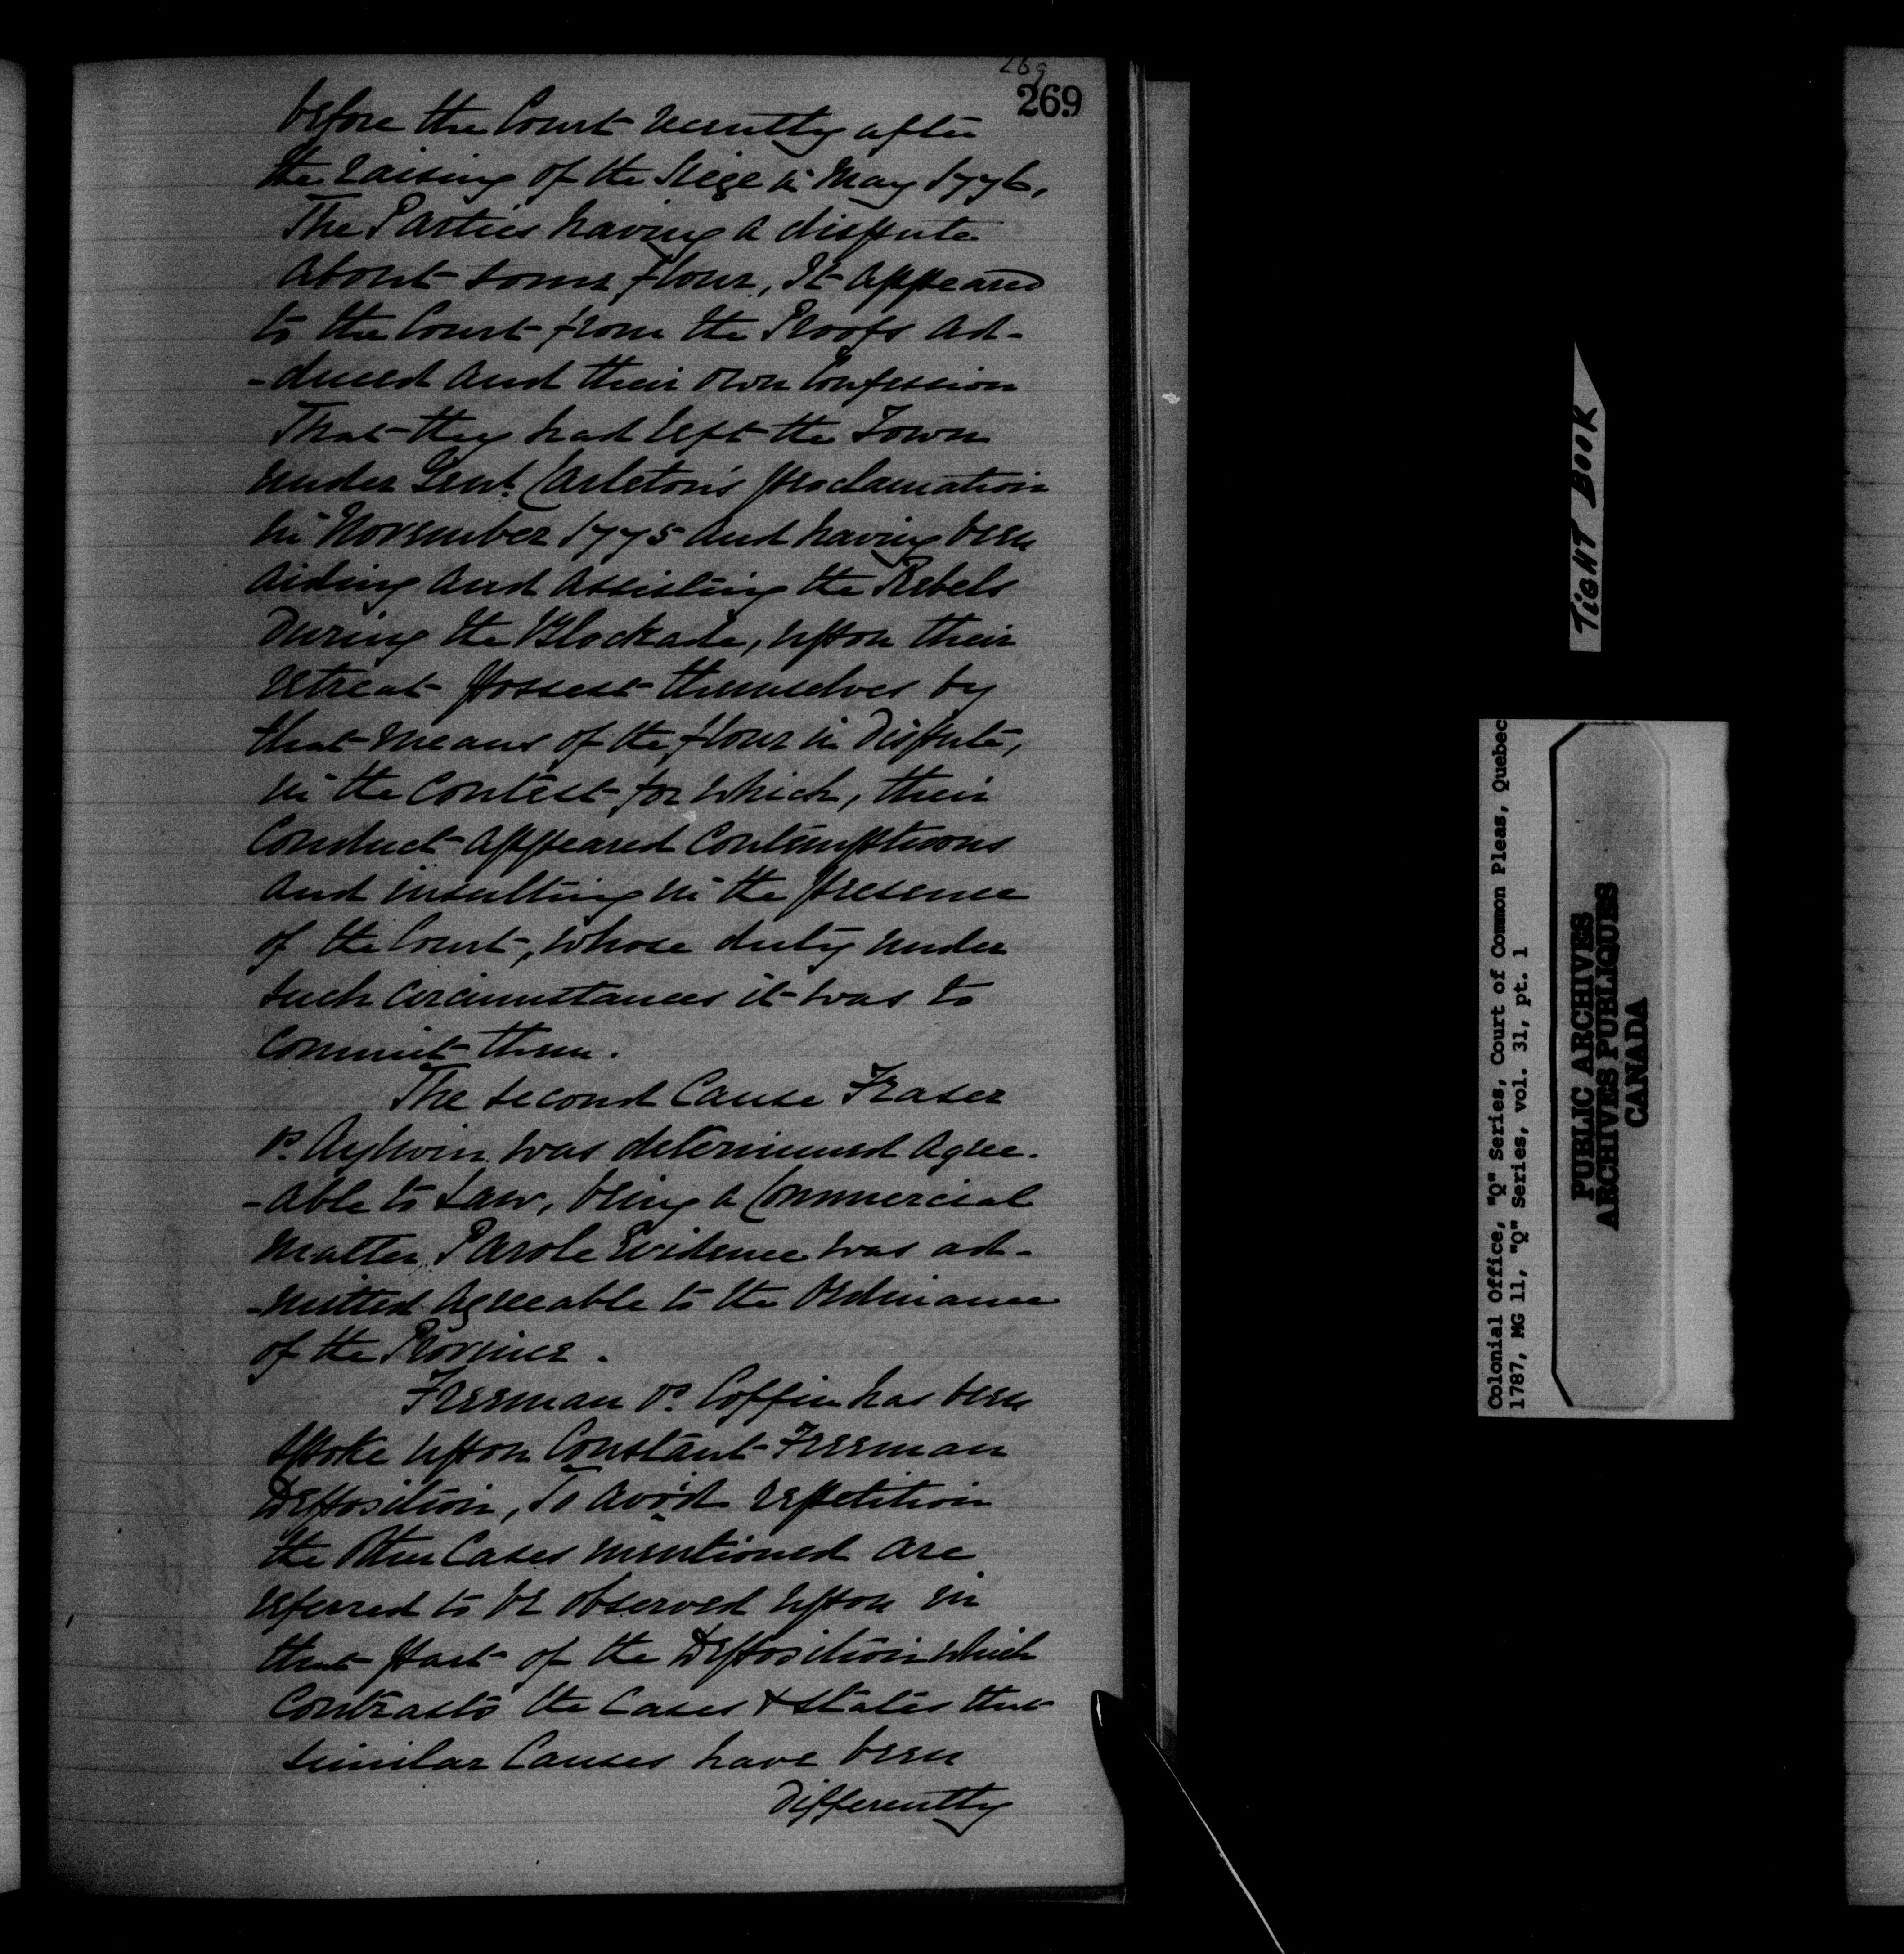 269
269
before the Court recently after
the raising of the Siege in May 1776,
The Parties having a dispute
about some flour, It appeared
to the Court from the Proofs ad-
-duced and their own Confession
That they had left the Town
under Genl. Carleton's proclamation
in November 1775 and having been
aiding and assisting the Rebels
During the Blockade, upon their
retreat possest themselves by
that means of the flour in Dispute,
in the Contest for which, their
Conduct appeared Contemptuous
and insulting in the presence
of the Court, whose duty under
such circumstances it was to
commit them.
The second Cause Fraser
vs. Aylwin was determined agree-
-able to Law, being a Commercial
matter Parole Evidence was ad-
-mitted agreeable to the Ordinance
of the Province.
Freeman vs. Coffin has been
spoke upon Constant Freeman
Deposition, To avoid repetition
the other Cases mentioned are
referred to be observed upon in
that part of the Deposition which
Contrasts the Cases & states that
similar Causes have been
differently
TIGHT BOOK
Colonial Office, "Q" Series, Court of Common Pleas, Quebec
1787, MG 11, "Q" Series, vol. 31, pt. 1
PUBLIC ARCHIVES
ARCHIVES PUBLIQUES
CANADA